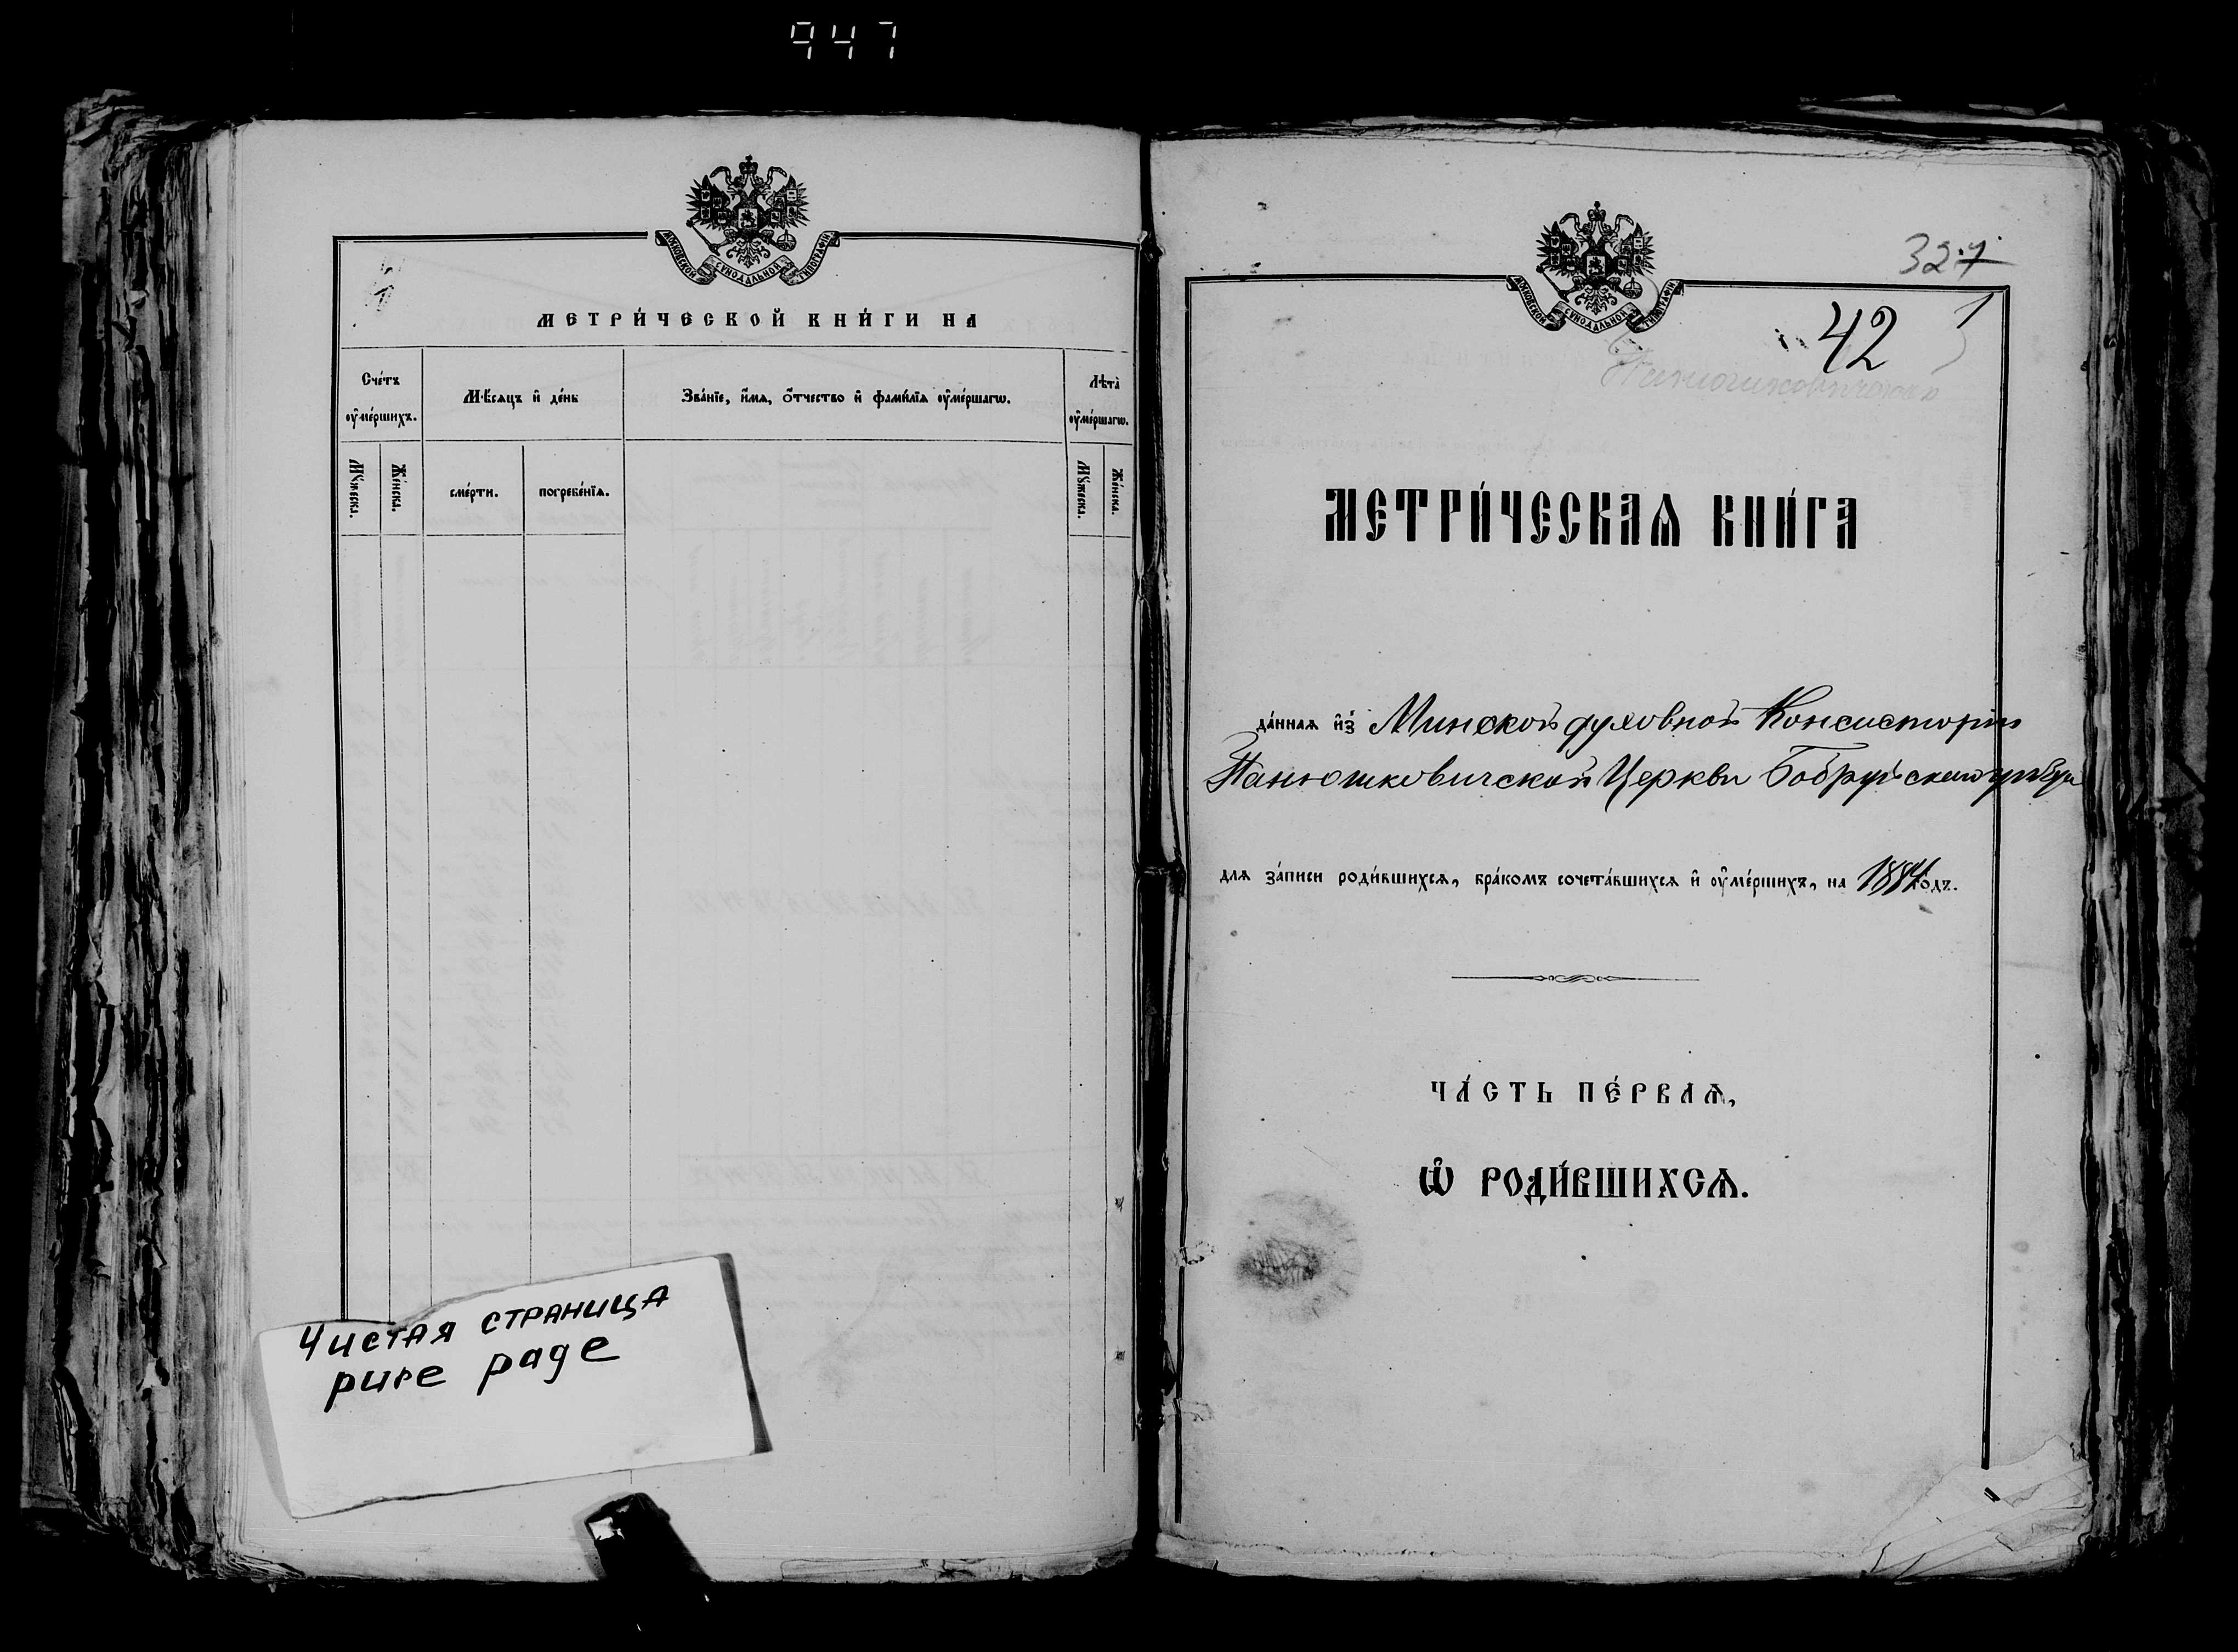 947
МОСКОВСКОЙ СѴНОДАЛЬНОЙ ТИПОГРАФІИ
МЕТРИ́ЧЕСКОЙ КНИ́ГИ НА
Сче́тъ оу҆ме́ршихъ.
Мѣ́сяцъ и҆ де́нь
Зва́нїе, и҆́мѧ, ѻ҆́тчество и҆ фами́лїѧ оу҆ме́ршагѡ.
Лѣта̀ оу҆ме́ршагѡ.
Мꙋ́жеска.
Же́нска.
сме́рти.
погребе́нїѧ.
Мꙋ́жеска.
Же́нска.
Чистая страница
pure page
МОСКОВСКОЙ СѴНОДАЛЬНОЙ ТИПОГРАФІИ
327
42
МЕТРИ́ЧЕСКАѦ КНИ́ГА
да́ннаѧ и҆з̾ Минской духовной Консисторіи
Панюшковичской Церкви Бобруйскаго уѣзда
для за́писи роди́вшихсѧ, бра́комъ сочета́вшихсѧ и҆ оу҆ме́ршихъ, на 1884 годъ.
ЧА́СТЬ ПЕ́РВАѦ,
Ѽ РОДИ́ВШИХСѦ.